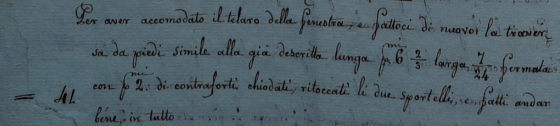 Per aver accomodato il telaro della fenestra, e fattoci di nuovo la traver-
sa da piedi simile alla già descritta lunga p.mi 6 2/3 larga 7/24 fermata
= 41. con p.mi 2. di contraforti chiodati, ritoccati li due sportelli, e fatti andar
bene, in tutto